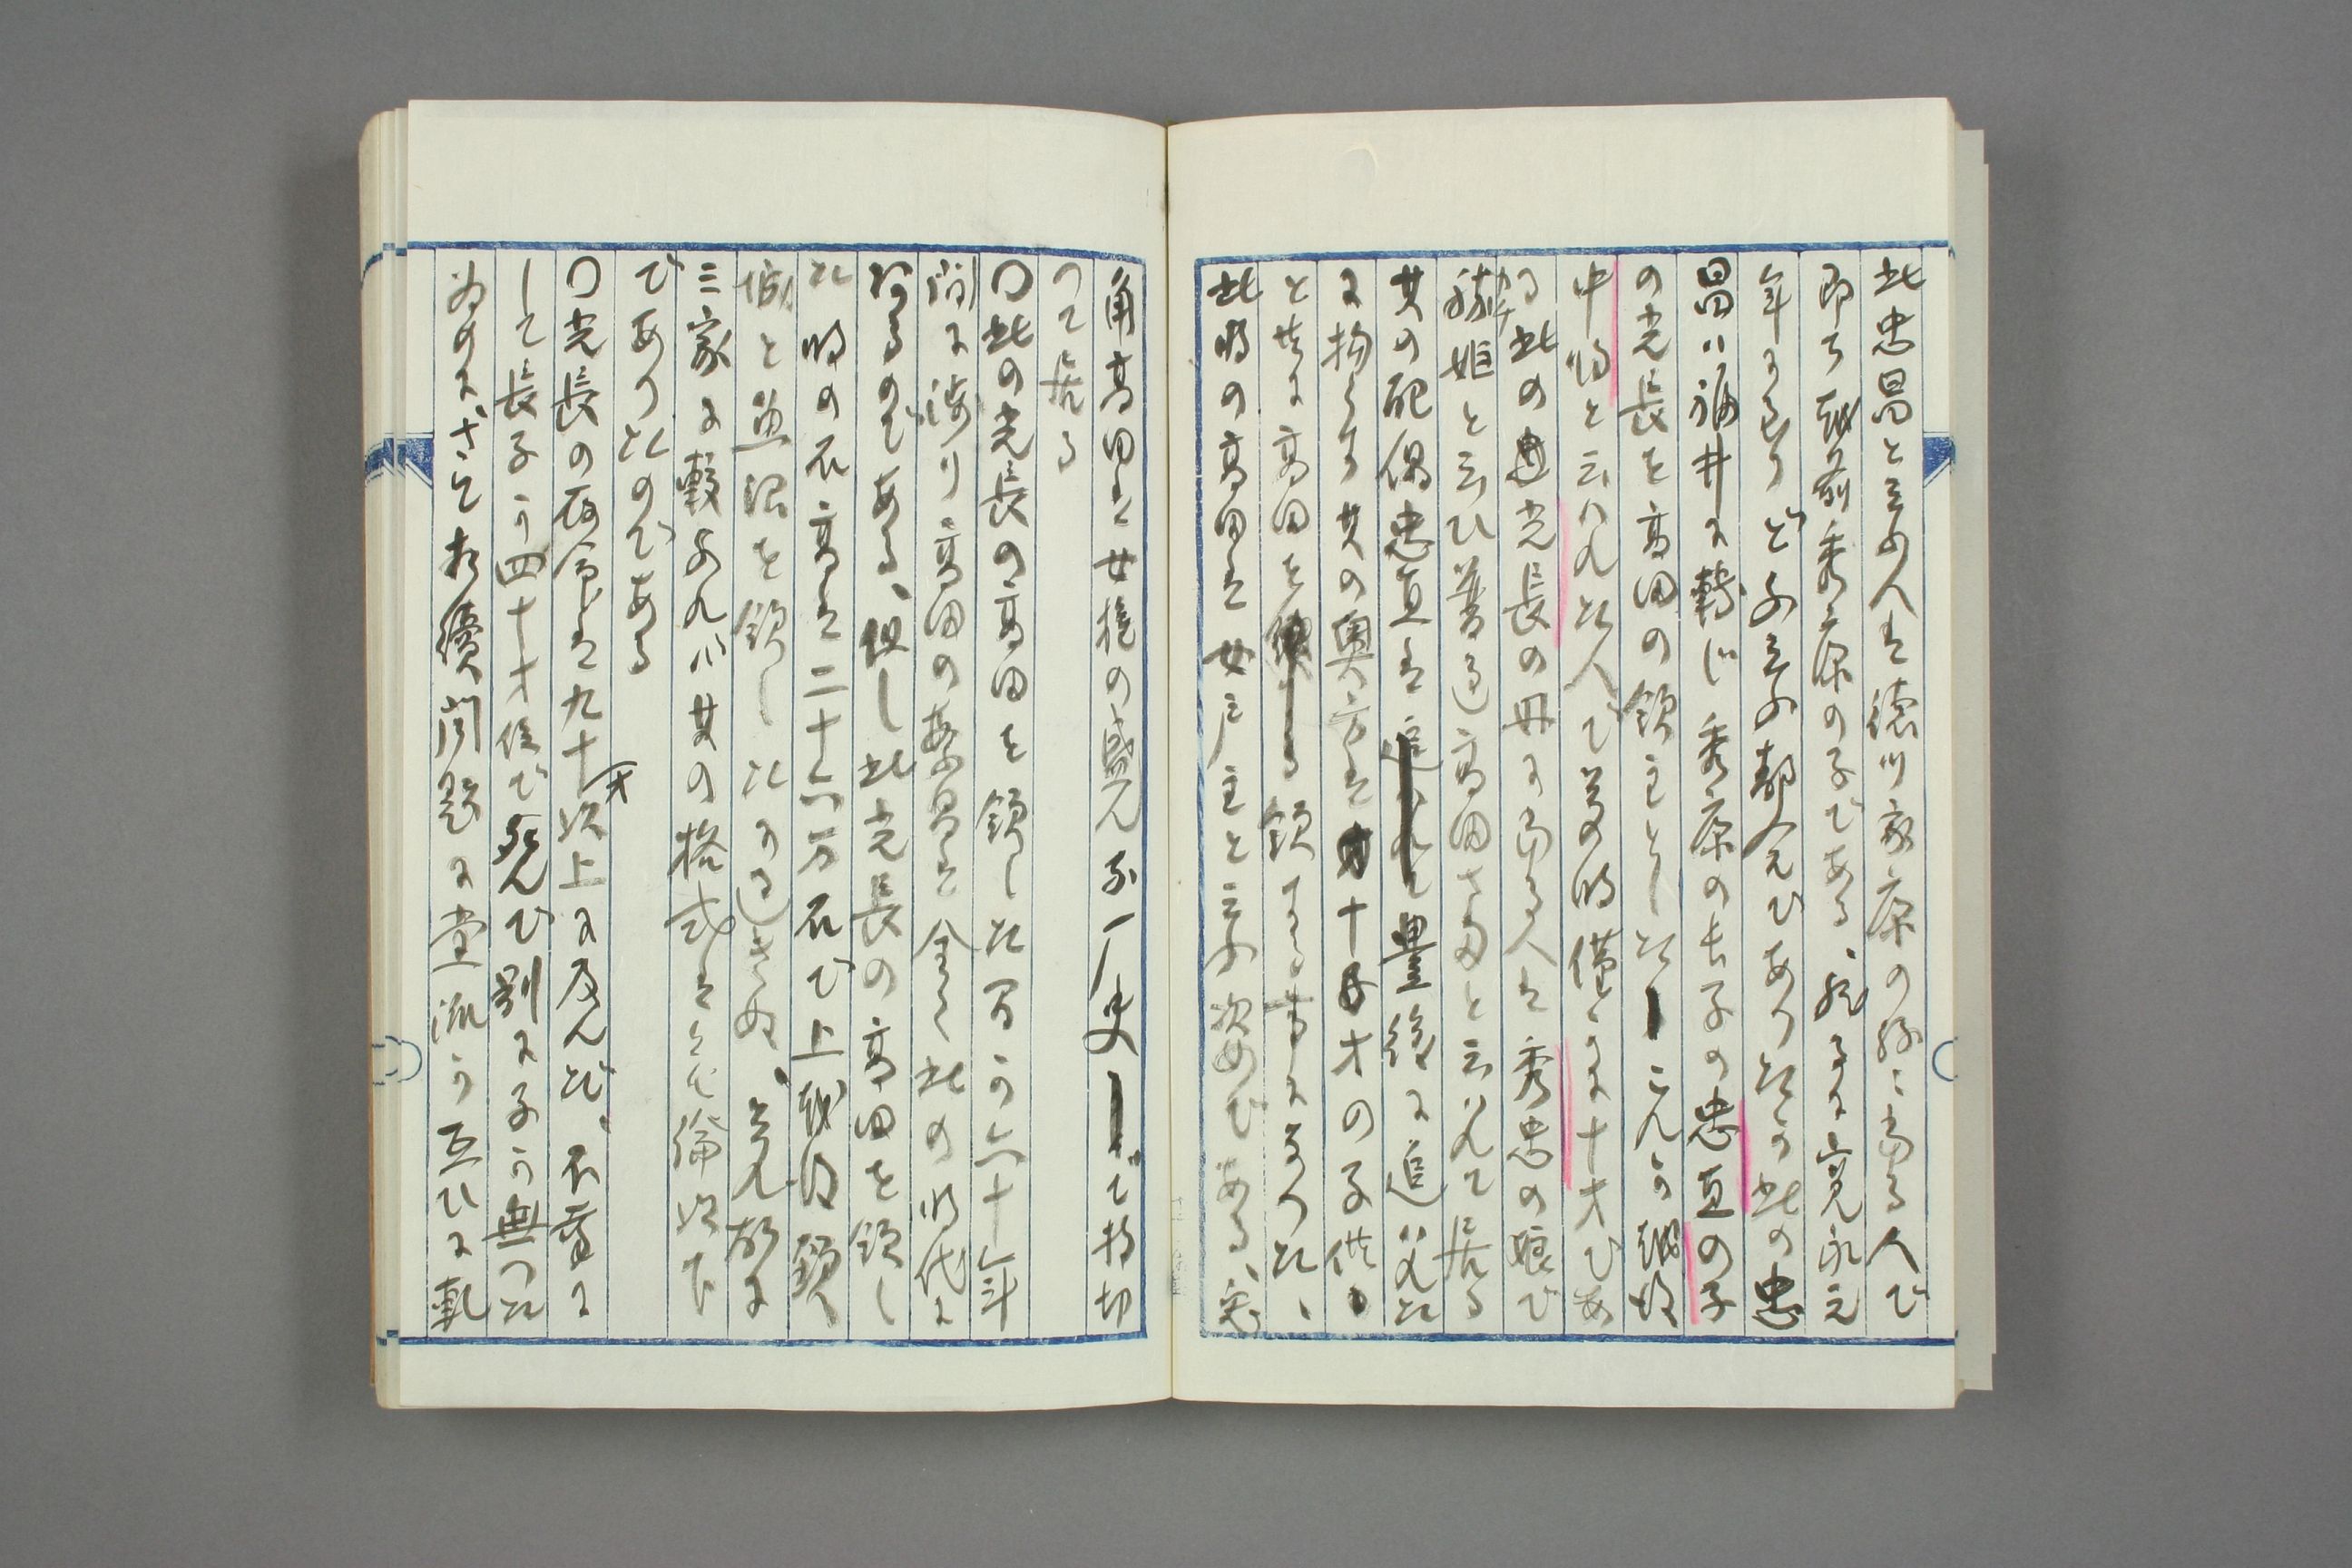 此忠昌と云ふ人は徳川家康の孫に当る人で
即ち越前秀康の子である、然るに寛永元
年まるで云ふ都合であつたが此の忠
昌は福井に転じ秀康の長子の忠直の子
の光長を高田の領主とした こんが越後
中将と云はれた人で其の時僅かに十才であ
る此の光長の母に当る人は秀忠の娘で
勝姫と云ひ普通高田さまと云はれて居る
カツ
其の配偶忠直は豊後に追はれた
に拘らず其の奥方は十才の子供
と共に高田を領する事になつた、
此時の高田は女戸主と云ふ次第である、兎
角高田は女権の盛んな一史で持切
つて居る
〇此の光長の高田を領した間が六十年
間に渉り高田の繁昌は全く此の時代に
あるのである、但し此光長の高田を領し
た時の石高は二十六万石で上越後領
域と魚沼を領したに過ぎぬ、之れ故に
三家に較ぶれば其の格式はとても倫以下
であつたのである
〇光長の存命は九十才以上に及んだ、不幸に
して長子が四十才位で死んで別に子が無つた
為めに、さて相続問題に堂上流が互ひに軋